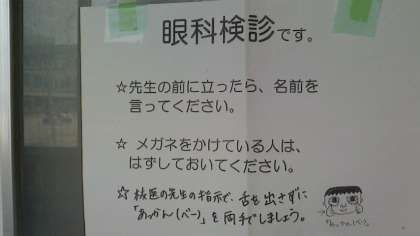 眼科検診です。
☆先生の前に立ったら、名前を
言ってください。
☆ メガネをかけている人は、
はずしておいてください。
☆ 校医の先生の指示で、舌を出さずに
「あっかんべー」を両手でしましょう。
「あっかんべー」